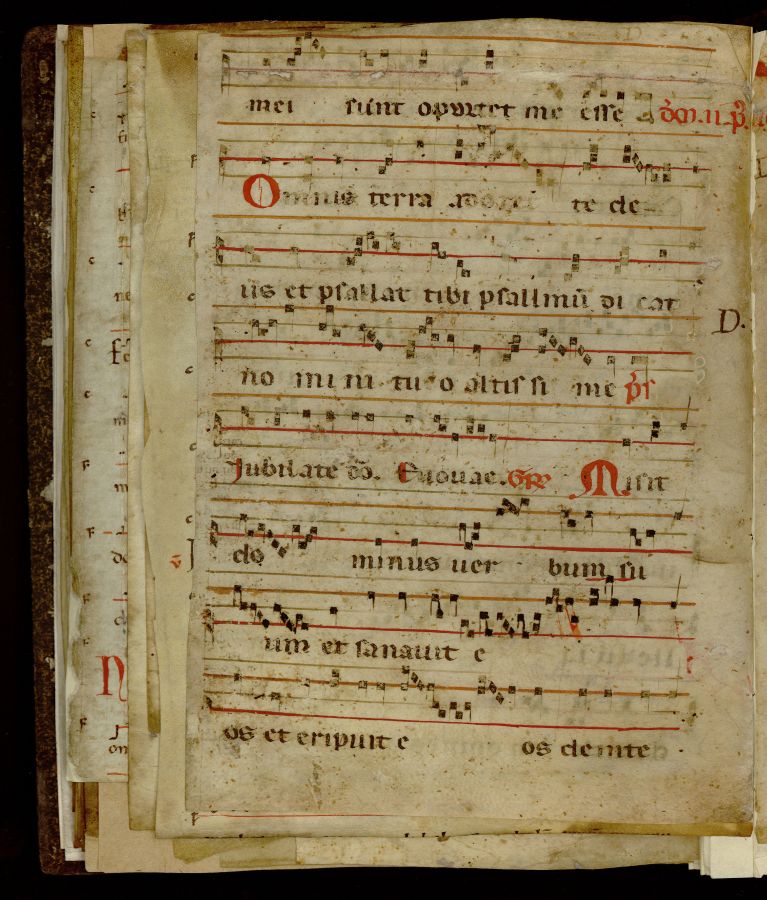 mei sunt oportet me esse dom. ii. p̃.
Omnis terra adoret te de
us et psallat tibi psallmũ di cat
D.
no mi ni tu o altis si me p̃s
Jubilate dõ. Euouae. Gr̃ Misit
do minus uer bum su
um et sanauit e
os et eripuit e os de inte